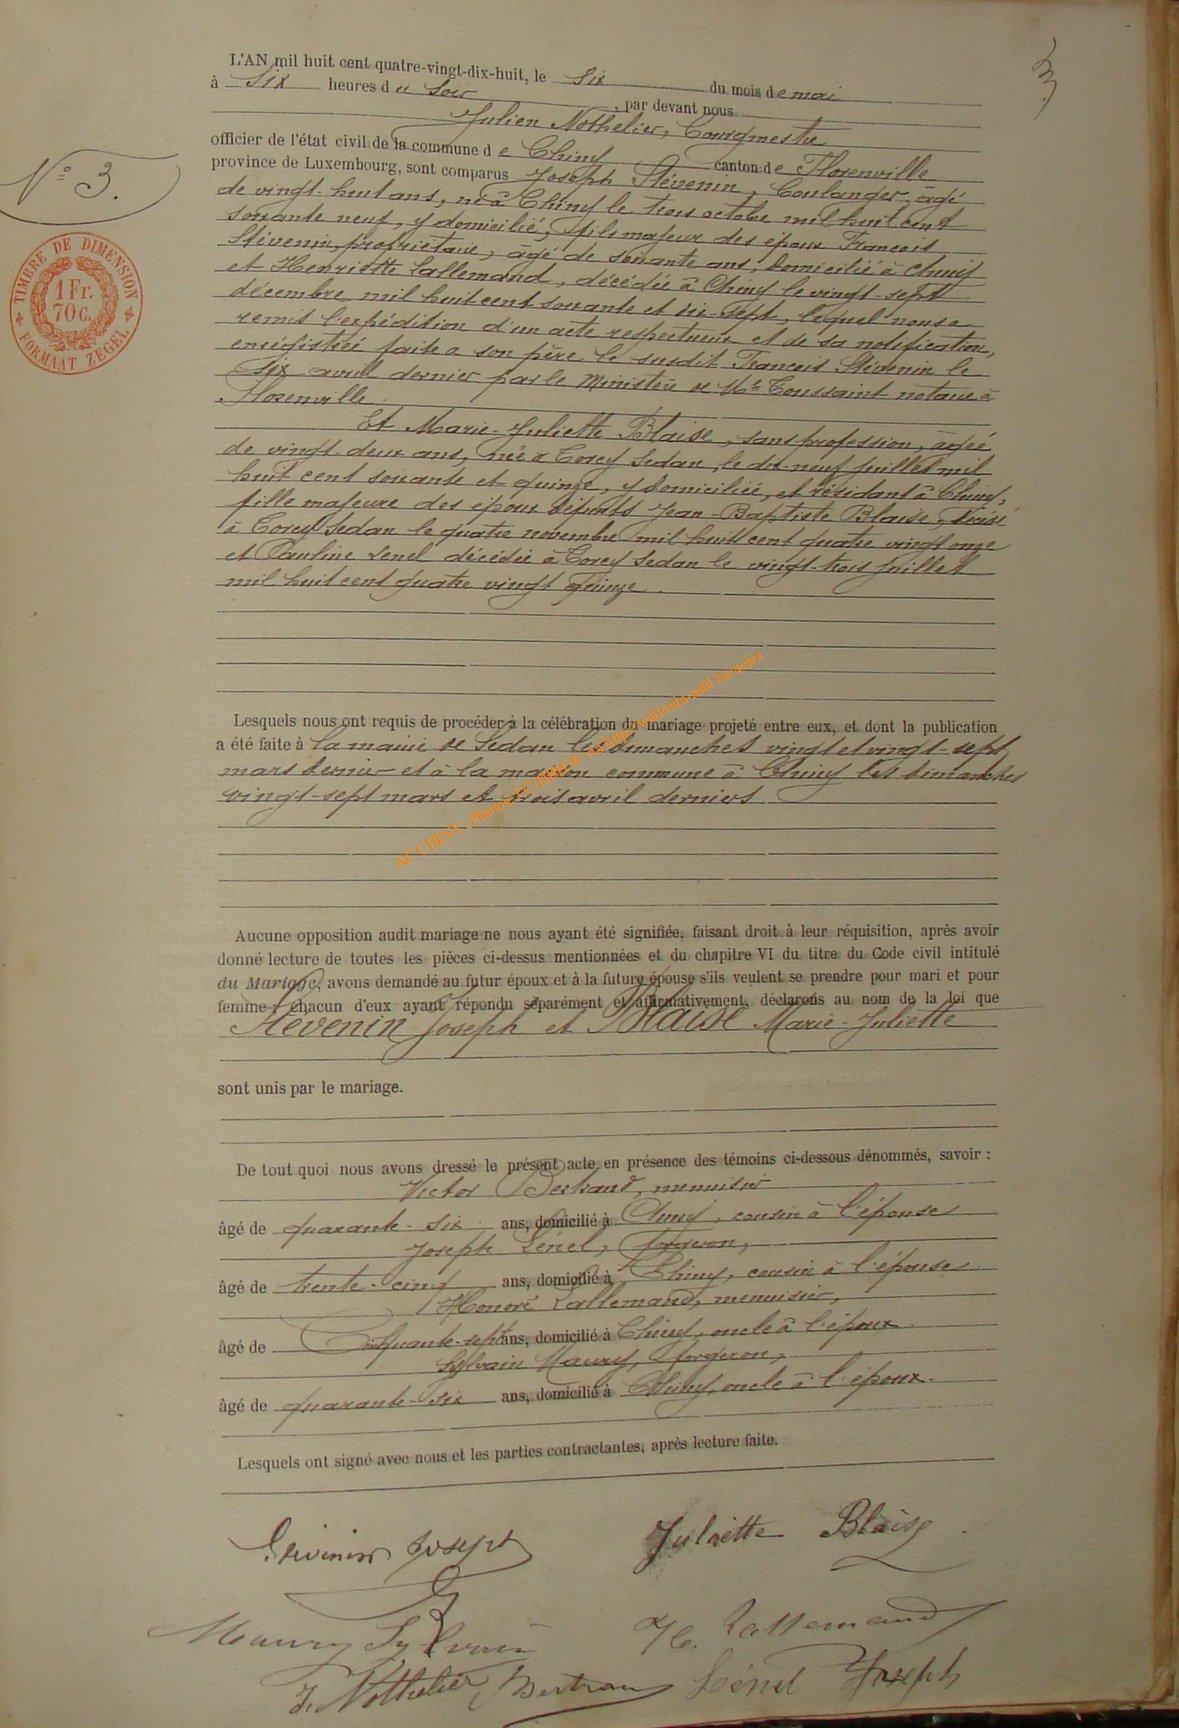 3.
L'AN mil huit cent quatre-vingt-dix-huit, le six du mois de mai
à six heures du soir, par devant nous
Julien Nothelier, Bourgmestre
officier de l'état civil de la commune de Chiny canton de Florenville
province de Luxembourg, sont comparus Joseph Stévenin, boulanger, âgé
N° 3.
de vingt-huit ans, né à Chiny le trois octobre mil huit cent
soixante neuf, y domicilié, fils majeur des époux François
Stévenin, propriétaire, âgé de soixante ans, domicilié à Chiny
et Henriette Lallemand, décédée à Chiny le vingt-sept
décembre mil huit cent soixante et dix-sept, lequel nous a
remis l'expédition d'un acte respectueux et de sa notification,
enrégistrée faite a son père le susdit François Stévenin le
six avril dernier par le Ministère de Me Toussaint notaire à
Florenville.
TIMBRE DE DIMENSION
1 Fr.
70 C.
FORMAAT ZEGEL
Et Marie-Juliette Blaise, sans profession, âgée
de vingt-deux ans, née à Torcy Sedan, le dix-neuf juillet mil
huit cent soixante et quinze, y domiciliée, et résidant à Chiny,
fille majeure des époux défunts Jean-Baptiste Blaise, décédé
à Torcy Sedan le quatre novembre mil huit cent quatre vingt onze
et Pauline Lenel décédée à Torcy Sedan le vingt-trois juillet
mil huit cent quatre vingt quinze.
Lesquels nous ont requis de procéder à la célébration du mariage projeté entre eux, et dont la publication
a été faite à la mairie de Sedan les dimanches vingt et vingt-sept
mars dernier et à la maison commune à Chiny les dimanches
vingt-sept mars et trois avril derniers
Aucune opposition audit mariage ne nous ayant été signifiée, faisant droit à leur réquisition, après avoir
donné lecture de toutes les pièces ci-dessus mentionnées et du chapitre VI du titre du Code civil intitulé
du Mariage, avons demandé au futur époux et à la future épouse s'ils veulent se prendre pour mari et pour
femme ; chacun d'eux ayant répondu séparément et affirmativement, déclarons au nom de la loi que
Stévenin Joseph et Blaise Marie-Juliette
sont unis par le mariage.
De tout quoi nous avons dressé le présent acte en présence des témoins ci-dessous dénommés, savoir :
Victor Bertrand, menuisier
âgé de quarante-six ans, domicilié à Chiny, cousin à l'épouse
Joseph Lénel, forgeron,
âgé de trente-cinq ans, domicilié à Chiny, cousin à l'épouse
Honoré Lallemand, menuisier,
âgé de Cinquante-sept ans, domicilié à Chiny, oncle à l'époux
Sylvain Maury, forgeron,
âgé de quarante-six ans, domicilié à Chiny, oncle à l'époux.
Lesquels ont signé avec nous et les parties contractantes, après lecture faite.
Stévenin Joseph Juliette Blaise
Maury Sylvain H. Lallemand
J. Nothelier Bertrand Lénel Joseph